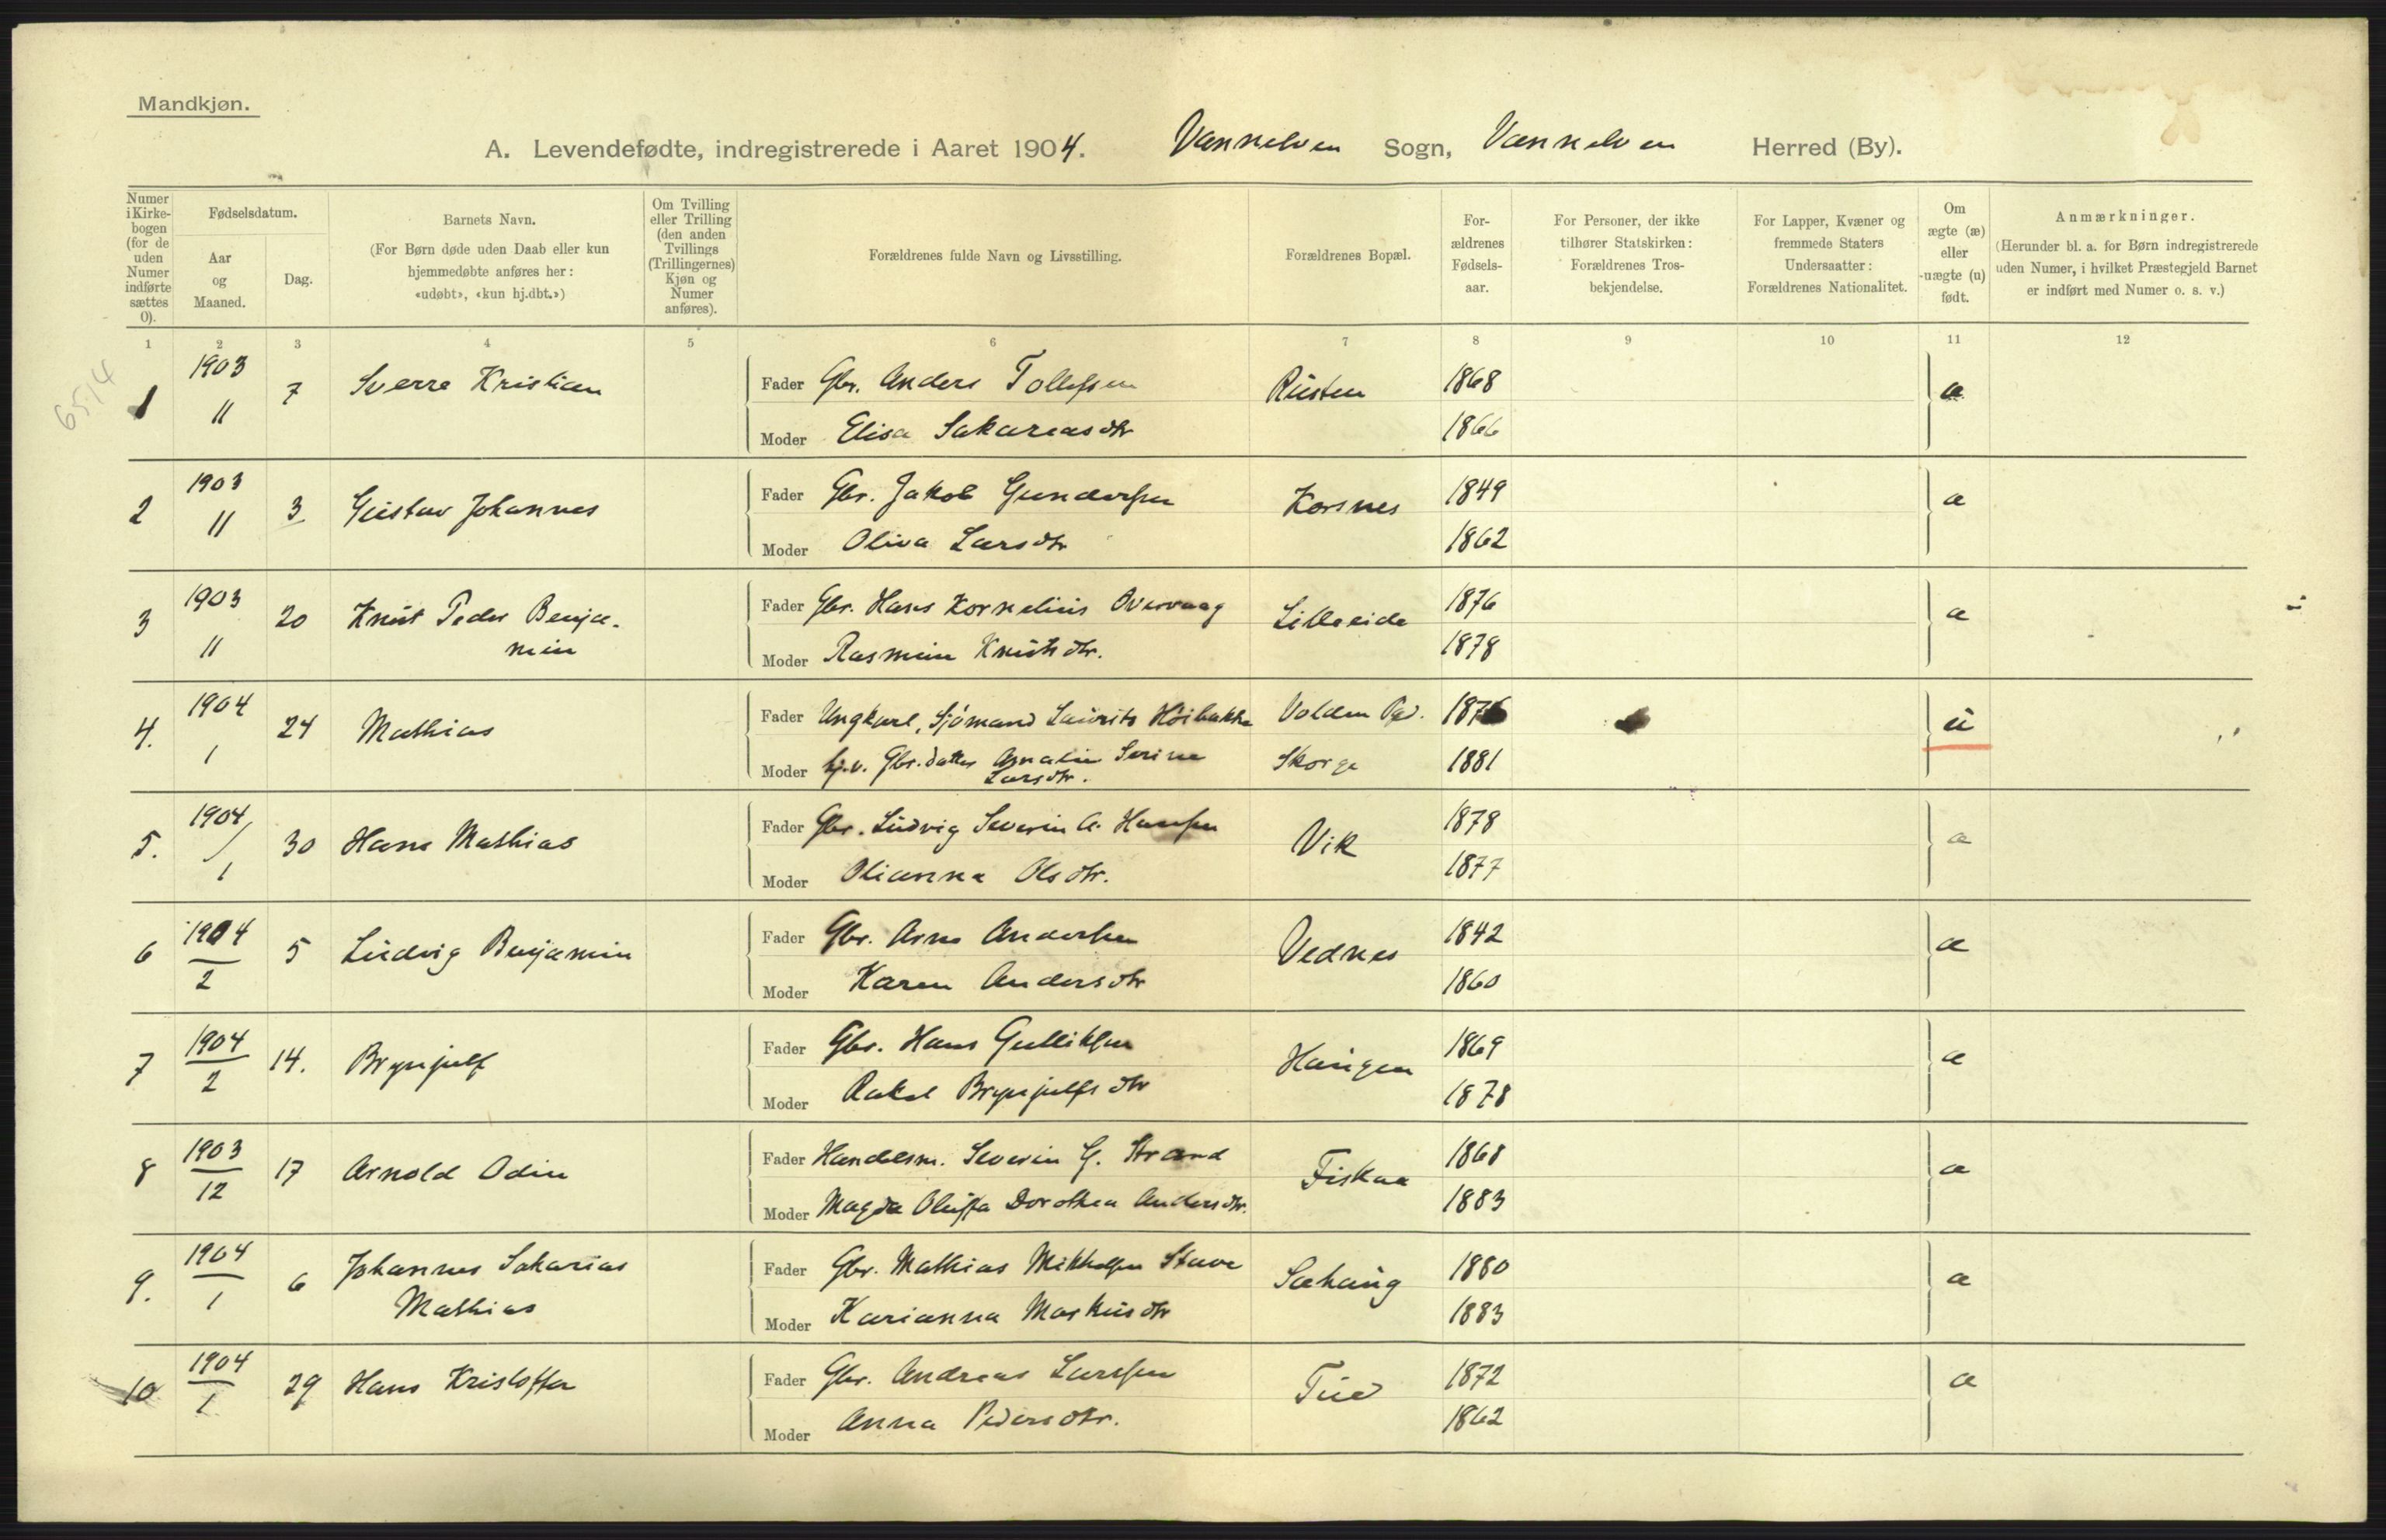 Mandkjøn.
A. Levendefødte, indregistrerede i Aaret 1904. Vannelven Sogn, Vannelven Herred (By).
Numer i Kirke-bogen (for de uden Numer indførte sættes 0).
Fødselsdatum.
Aar og Maaned.
Dag.
Barnets Navn.
(For Børn døde uden Daab eller kun hjemmedøbte anføres her: «udøbt», «kun hj.dbt.»)
Om Tvilling eller Trilling (den anden Tvillings (Trillingernes) Kjøn og Numer anføres).
Forældrenes fulde Navn og Livsstilling.
Forældrenes Bopæl.
For-ældrenes Fødsels-aar.
For Personer, der ikke tilhører Statskirken: Forældrenes Tros-bekjendelse.
For Lapper, Kvæner og fremmede Staters Undersaatter: Forældrenes Nationalitet.
Om ægte (æ) eller uægte (u) født.
Anmærkninger.
(Herunder bl. a. for Børn indregistrerede uden Numer, i hvilket Præstegjeld Barnet er indført med Numer o. s. v.)
1 2 3 4 5 6 7 8 9 10 11 12
6514
1 1903 11 7 Sverre Kristian
Fader Gbr. Anders Tollefsen Rusten 1868 æ
Moder Elisa Sakariasdtr 1866
2 1903 11 3 Gustav Johannes
Fader Gbr. Jakob Gundersen Korsnes 1849 æ
Moder Oliva Larsdtr 1862
3 1903 11 20 Knut Peder Benja-
min
Fader Gbr. Hans Kornelius Overvaag Lilleeide 1876 æ
Moder Rasmine Knutsdtr. 1878
4. 1904 1 24 Mathias
Fader Ungkarl, Sjömand Laurits Höibakke Volden Pgd. 1876 u
Moder hj.v. Gbr.datter Amalie Serine Skorge 1881
Larsdtr.
5. 1904 / 1 30 Hans Mathias
Fader Gbr. Ludvig Severin A. Hansen Vik 1878 æ
Moder Olianna Olsdtr. 1877
6 1904 2 5 Ludvig Benjamin
Fader Gbr. Arne Andersen Vednes 1842 æ
Moder Karen Andersdtr 1860
7 1904 2 14. Brynjulf
Fader Gbr. Hans Gulliksen Haugen 1869 æ
Moder Rakel Brynjulfsdtr 1878
8 1903 12 17 Arnold Odin
Fader Handelsm. Severin G. Strand Fiskaa 1868 æ
Moder Magda Oluffa Dorothea Andersdtr. 1883
9. 1904 1 6 Johannes Sakarias
Mathias
Fader Gbr. Mathias Mikkelsen Stave Sæhaug 1880 æ
Moder Karianna Markusdtr 1883
10 1904 1 29 Hans Kristoffer
Fader Gbr. Andreas Larssen Tue 1872 æ
Moder Anna Pedersdtr. 1862